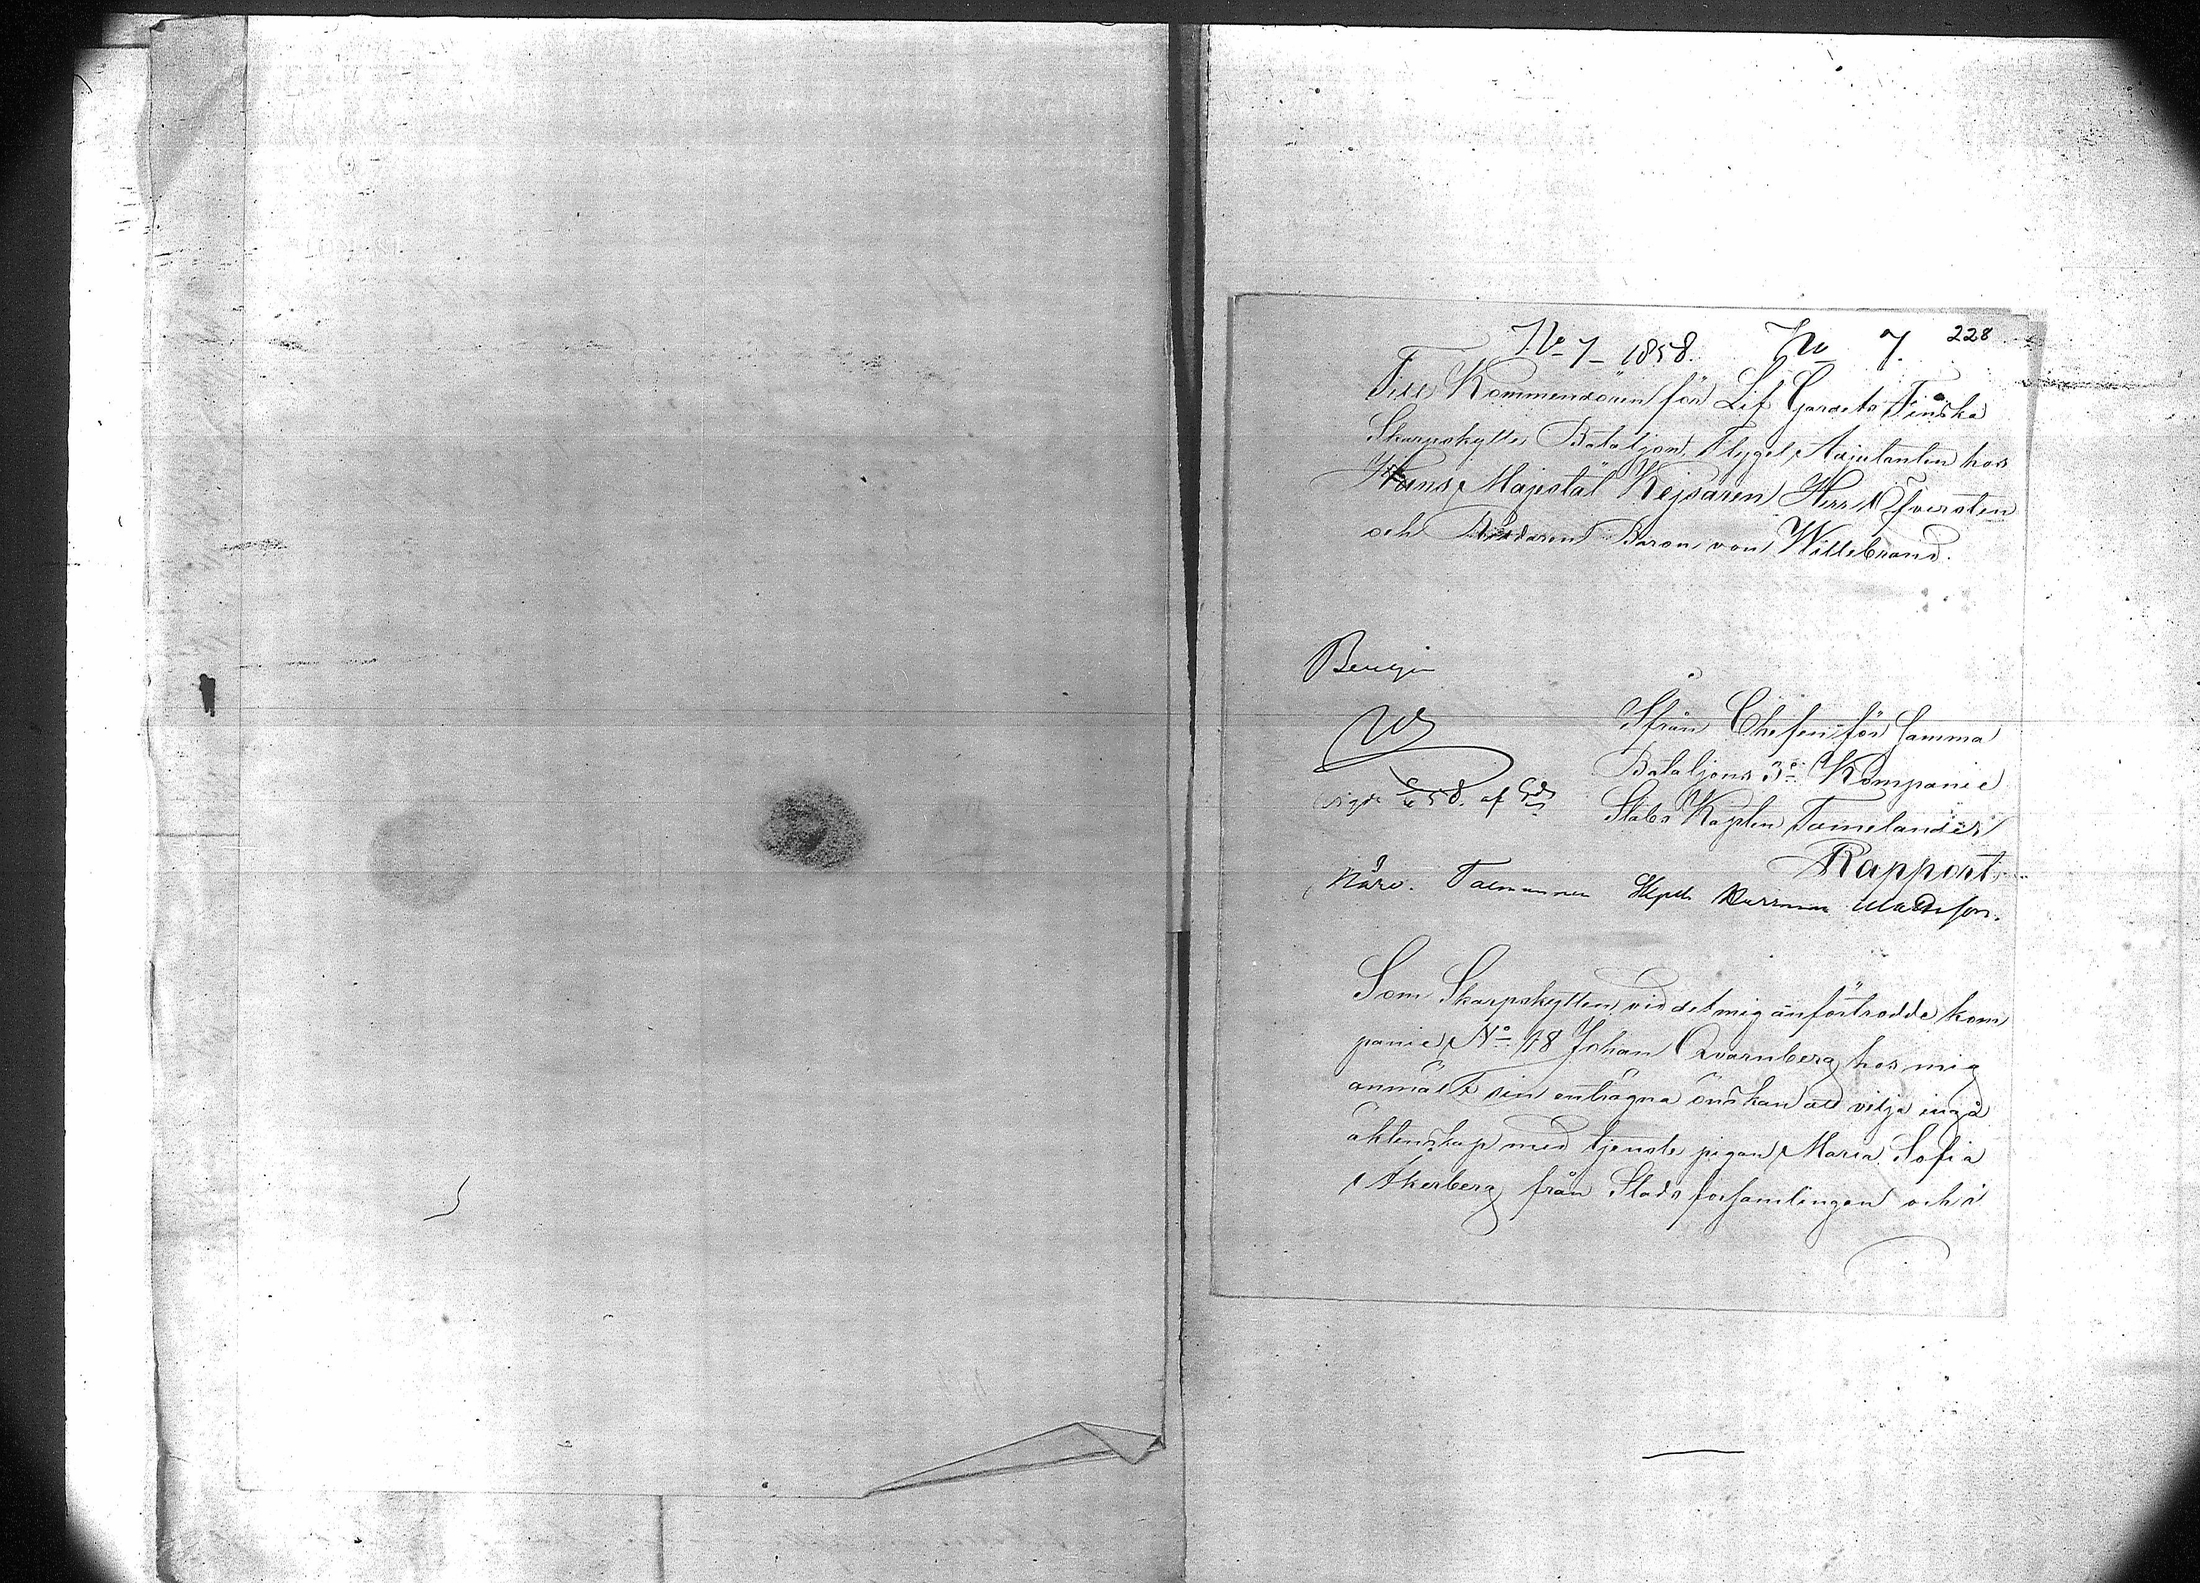 No 7 – 1858. No 7. 228
Till Kommendören för Lif Gardets Finska
Skarpskytte Bataljon, Flygel Adjutanten hos
Hans Majestät Kejsaren, Herr Öfversten
och Riddaren Baron von Willebrand.
Ifrån Chefen för Samma
Bataljons 3e Kompanie
Stabs Kapten
Rapport.
Som Skarpskytten vid det mig anförtrodde kom
panie, No 18 Johan Qvarnberg hos mig
anmält sin enträgna önskan att vilja ingå
äktenskap med tjenste pigan Maria Sofia
Åkerberg från Stads församlingen och i